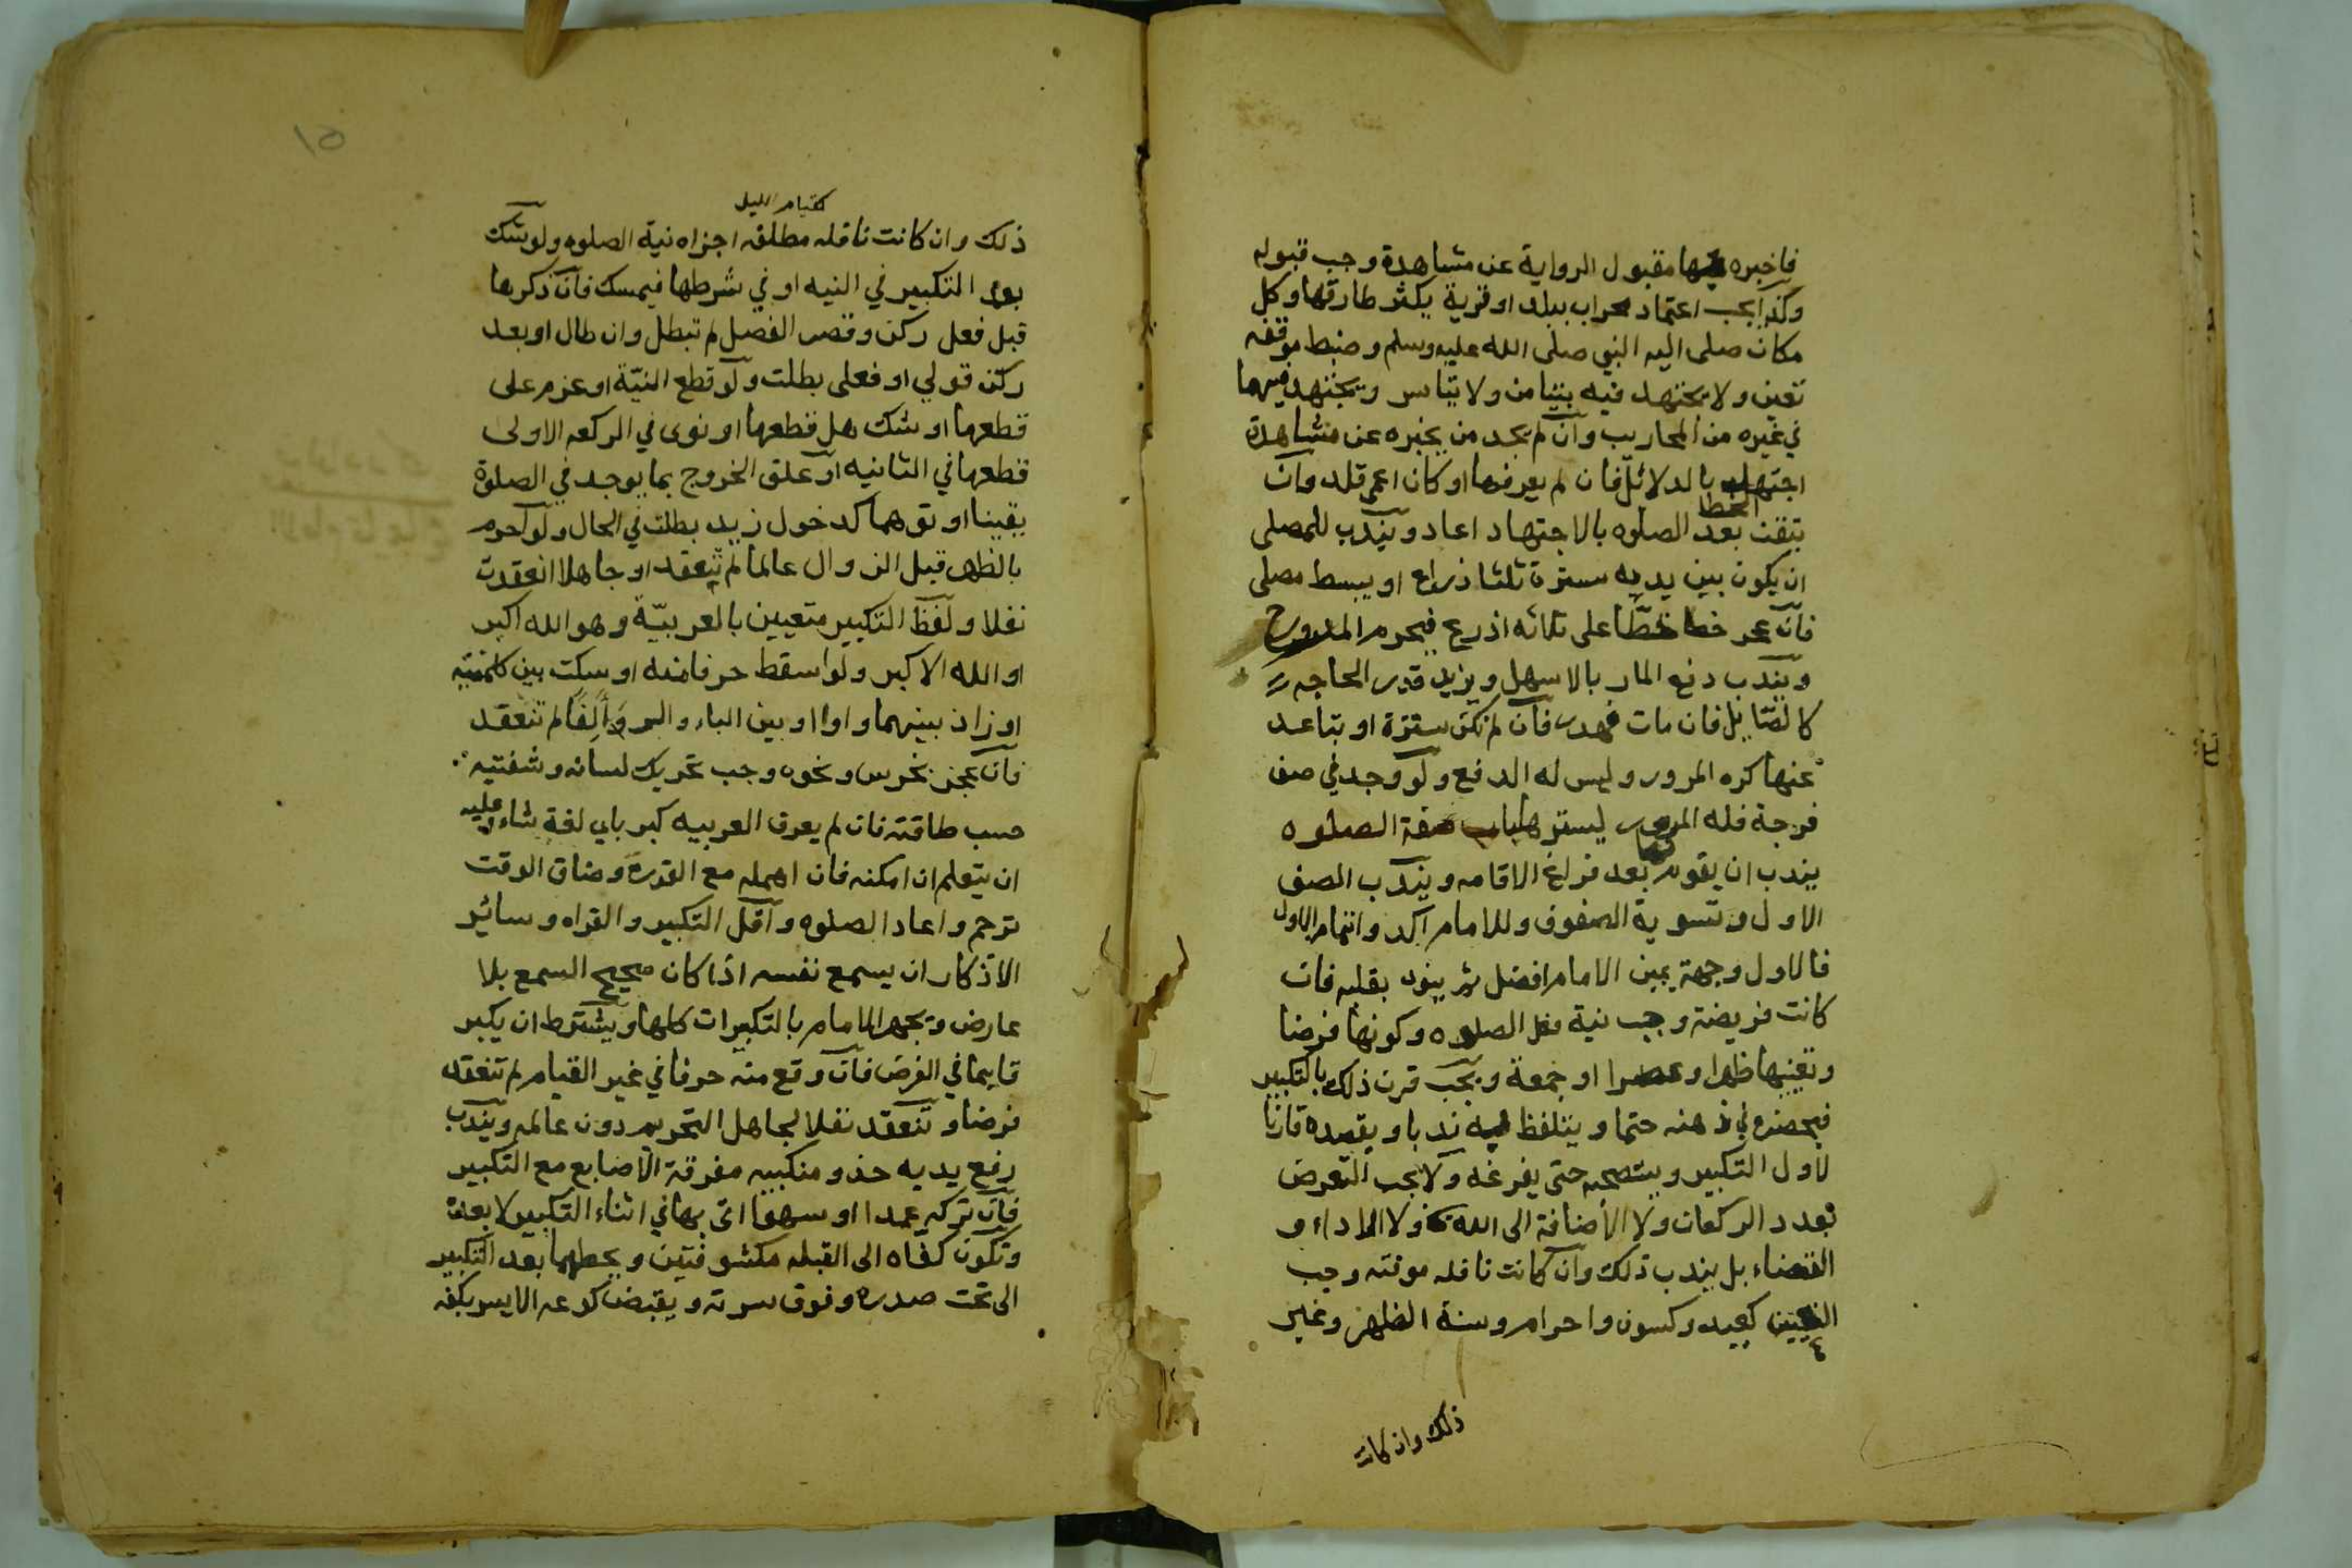 فاخبره بها مقبول الرواية عن مشاهدة وجب قبوله
وكذا يجب اعتماد محراب ببلد او قرية يكثر طارقها وكل
مكان صلى اليه النبي صلى الله عليه وسلم وضبط موقفه
تعين ولا يجتهد فيه بتيامن ولا تياسر ويجتهد فيهما
في غيره من المحاريب وان لم يجد من يخبره عن مشاهدة
اجتهد بالدلائل فان لم يعرفها او كان اعمى قلد وان
تيقن الخطا بعد الصلوه بالاجتهاد اعاد ويندب للمصلى
ان يكون بين يديه سترة ثلثا ذراع او يبسط مصلى
فان عجز خط خطا على ثلاثه اذرع فيحرم المرور ح
ويندب دفع المار بالاسهل ويزيد قدر الحاجه
كالصايل فان مات فهدر فان لم تكن سترة او تباعد
عنها كره المرور وليس له الدفع ولو وجد في صف
فرجة فله المرور ليسترها باب صفة الصلوه
يندب ان يقوم لها بعد فراغ الاقامه ويندب الصف
الاول وتسوية الصفوف وللامام آكد واتمام الاول
فالاول وجهة يمين الامام افضل ثم ينوى بقلبه فان
كانت فريضة وجب نية فعل الصلوه وكونها فرضا
وتعينها ظهرا وعصرا او جمعة ويجب قرن ذلك بالتكبير
فيحضره في ذهنه حتما ويتلفظ به ندبا ويقصده قارنا
لاول التكبير ويستصحبه حتى يفرغه ولا يجب التعرض
لعدد الركعات ولا الأضافة الى الله تعا ولا الاداء و
القضاء بل يندب ذلك وان كانت نافله موقته وجب
التعيين كعيد وكسوف واحرام وسنة الظهر وغير
٤
ذلك وان كانت
١٥
كقيام الليل
ذلك وان كانت نافله مطلقه اجزاه نية الصلوه ولو شك
بعد التكبير في النيه او في شرطها فيمسك فان ذكرها
قبل فعل ركن وقصر الفصل لم تبطل وان طال او بعد
ركن قولي او فعلى بطلت ولو قطع النيّة او عزم على
قطعها او شك هل قطعها او نوى في الركعه الاولى
قطعها في الثانيه او علق الخروج بما يوجد في الصلوة
يقينا او توهما كدخول زيد بطلت في الحال ولو احرم
بالظهر قبل الزوال عالما لم تنعقد او جاهلا انعقدت
نفلا ولفظ التكبير متعيين بالعربيّة وهو الله اكبر
او الله الاكبر ولو اسقط حرفا منه او سكت بين كلمتيه
او زاد بينهما واوا او بين الباء والر وَأَلِفًا لم تنعقد
فان عجز بخرس ونحوه وجب تحريك لسانه وشفتيه
حسب طاقته فان لم يعرف العربيه كبر باي لغة شاء وعليه
ان يتعلم ان امكنه فان اهمله مع القدرة وضاق الوقت
ترجم واعاد الصلوه واقل التكبير والقراه وسائر
الاذكار ان يسمع نفسه اذا كان صحيح السمع بلا
عارض ويجهر الامام بالتكبيرات كلها ويشترط ان يكبر
قايما في الفرض فان وقع منه حرفا في غير القيام لم تنعقد
فرضا وتنعقد نفلا لجاهل التحريم دون عالمه ويندب
رفع يديه حذو منكبيه مفرقة الاصابع مع التكبير
فان تركه عمدا او سهوا اتى بها في اثناء التكبير لا بعده
وتكون كفاه الى القبله مكشوفتين ويحطهما بعد التكبير
الى تحت صدره وفوق سرته ويقبض كوعه الايسر بكفه